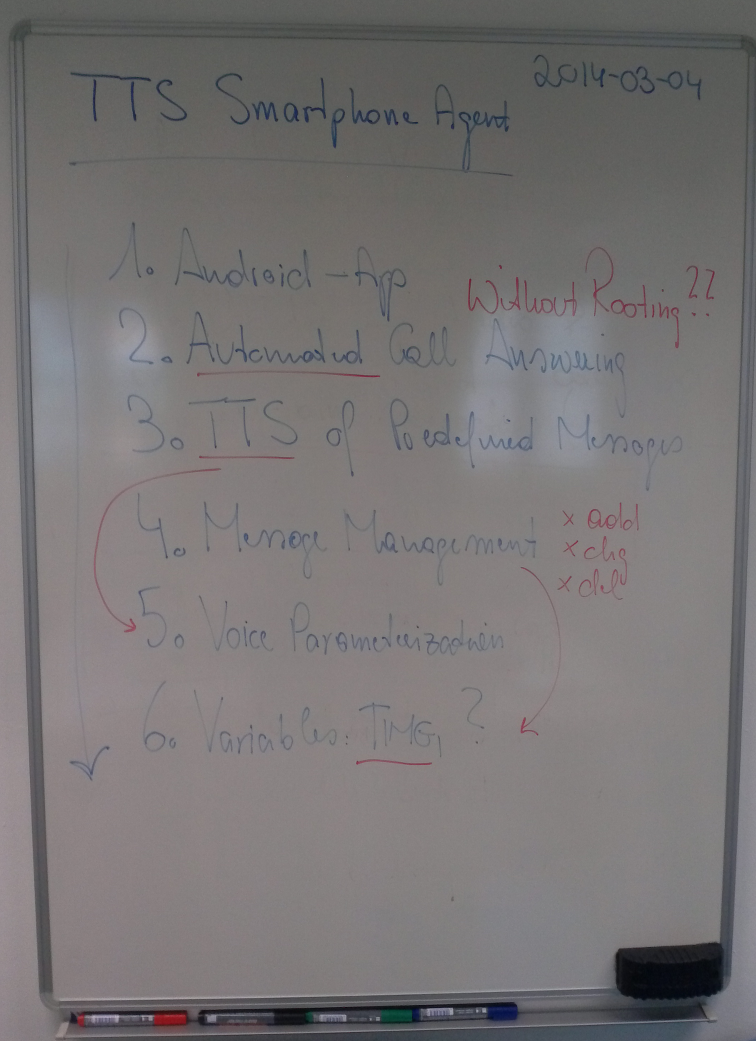 2014-03-04
TTS Smartphone Agent
1. Android-App
Without Rooting??
2. Automated Call Answering
3. TTS of Predefined Messages
4. Message Management
x add
x chg
x del
5. Voice Parameterization
6. Variables: TIME, ?